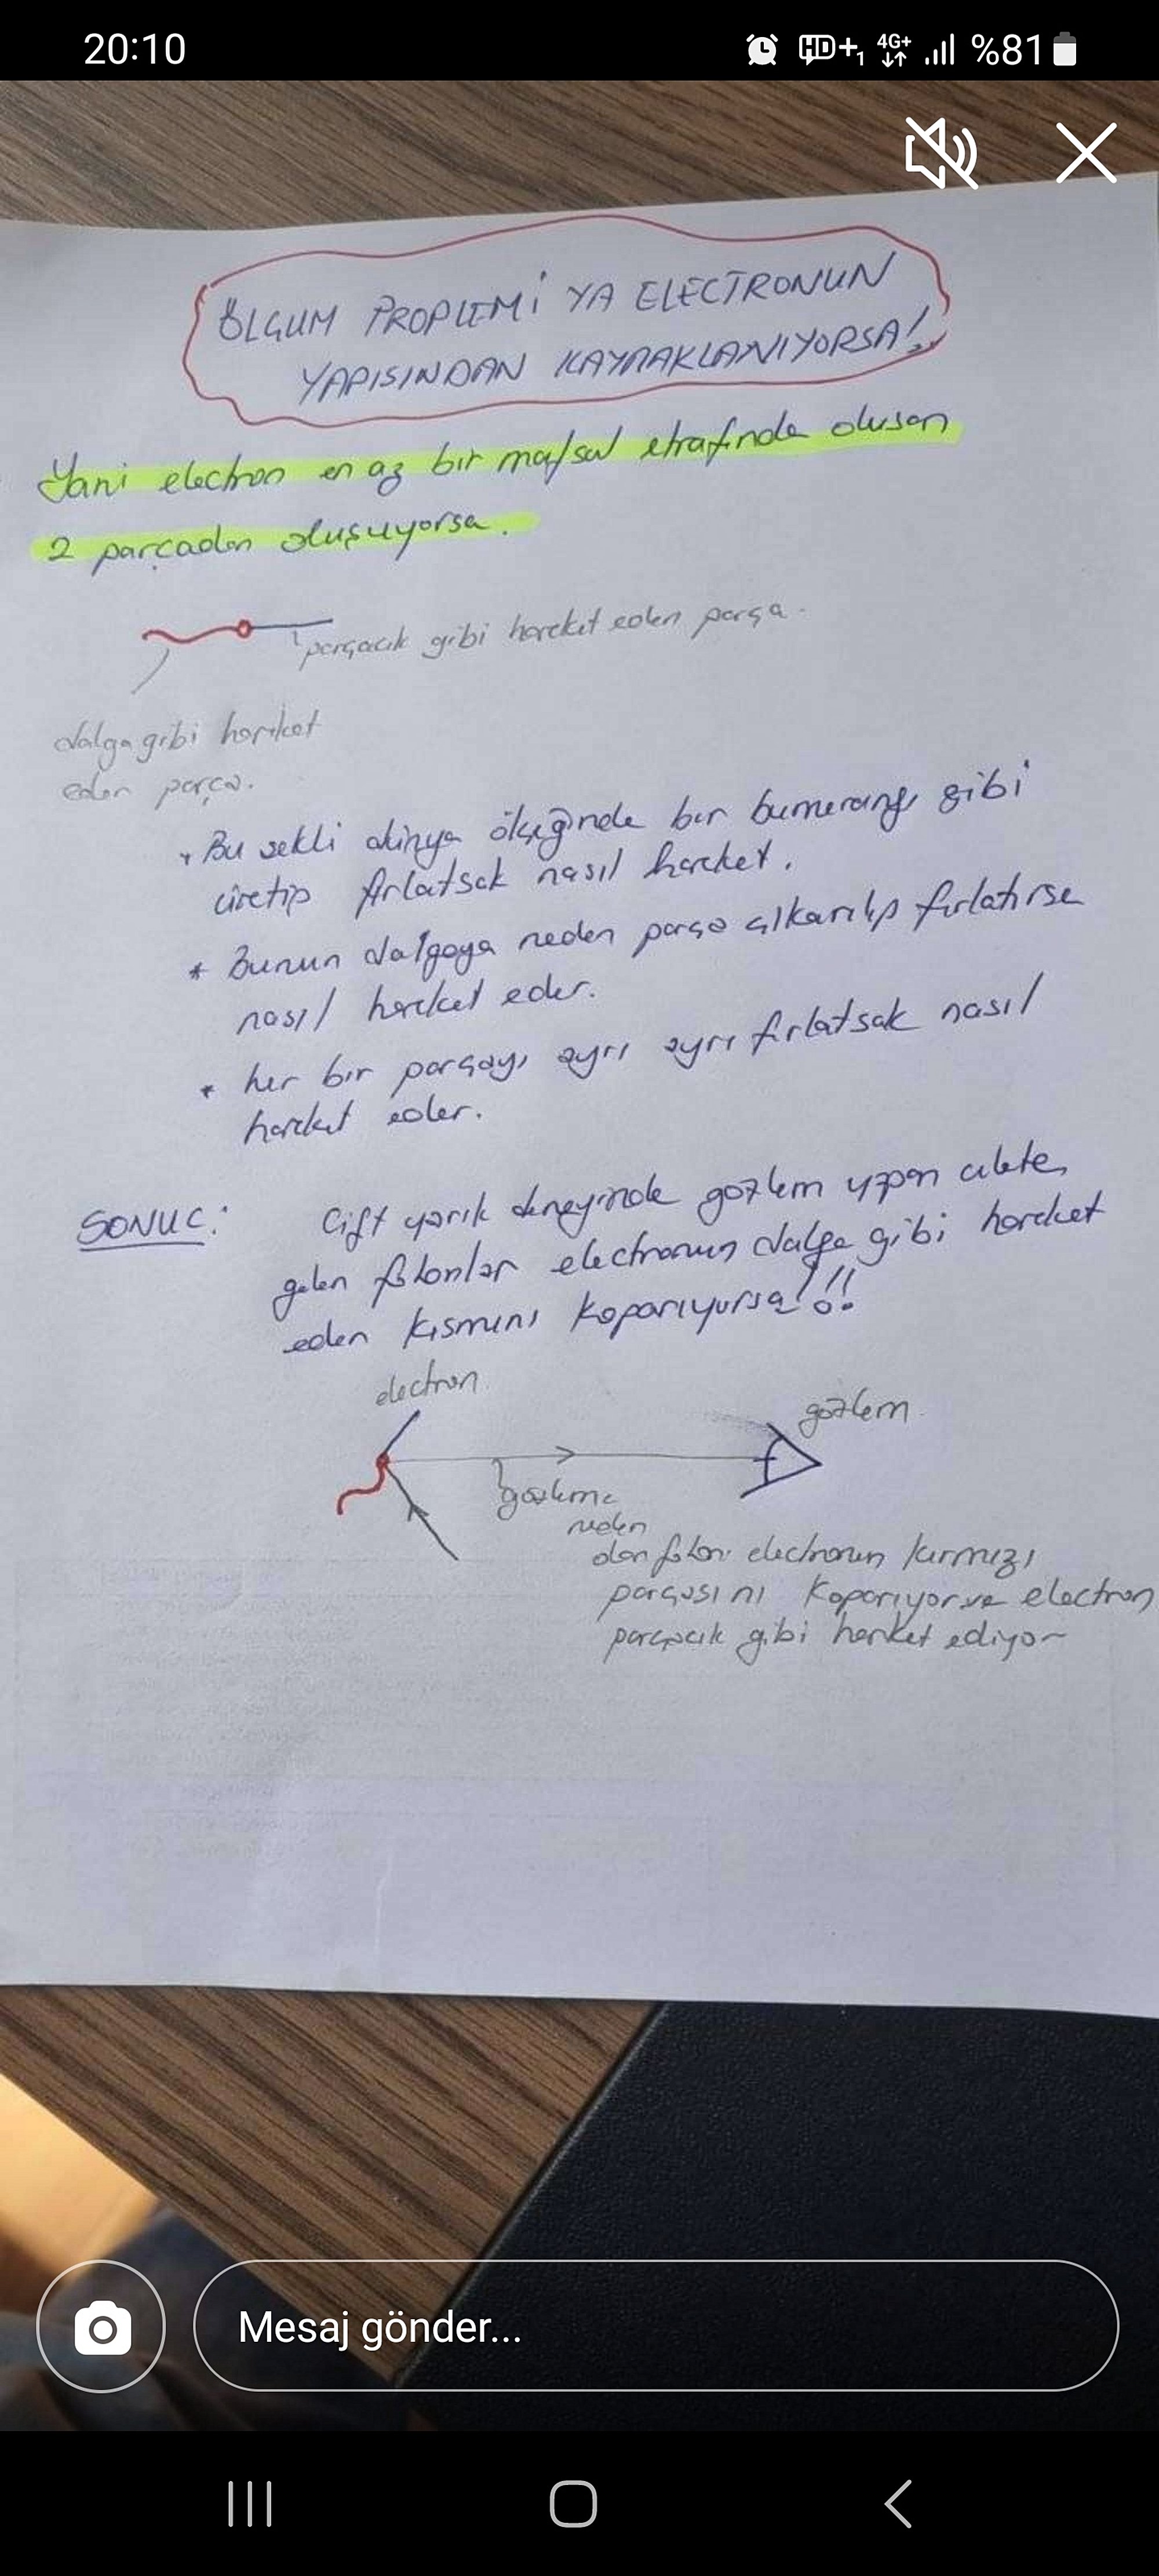 20:10
HD+1 4G+ %81
ÖLGUM PROPLEMİ YA ELECTRONUN
YAPISINDAN KAYNAKLANIYORSA!..
Yani electron en az bir mafsal etrafında olusan
2 parçadan oluşuyorsa.
parçacık gibi hareket eden parça.
dalga gibi hareket
eden parça.
* Bu sekli dünya ölçeğinde bir bumerang gibi
üretip fırlatsak nasıl hareket.
* Bunun dalgaya neden parça çıkarılıp fırlatırsa
nasıl hareket eder.
* her bir parçayı ayrı ayrı fırlatsak nasıl
hareket eder.
SONUC: Cift yarık deneyinde gozlem yapan alete,
gelen fotonlar electronun dalga gibi hareket
eden kısmını koparıyorsa!!!
electron
gozlem
gozleme
neden
olan foton electronun kırmızı
parçasını koparıyor ve electron
parçacık gibi hareket ediyor
Mesaj gönder...